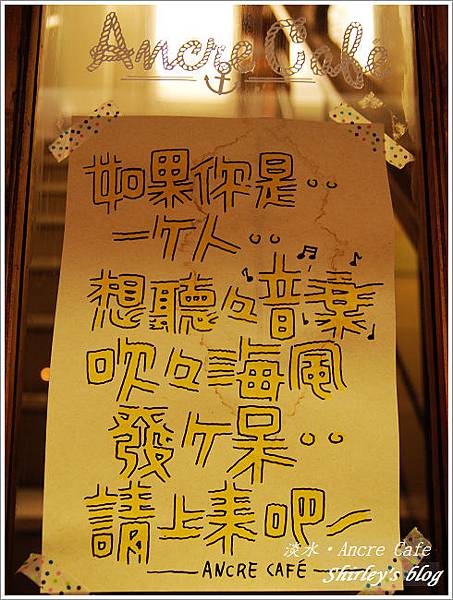 Ancre Café
如果你是..
一个人..
想聽々音樂
吹々海風
發个呆..
請上來吧~
ANCRE CAFÉ
淡水・Ancre Cafe
Shirley's blog